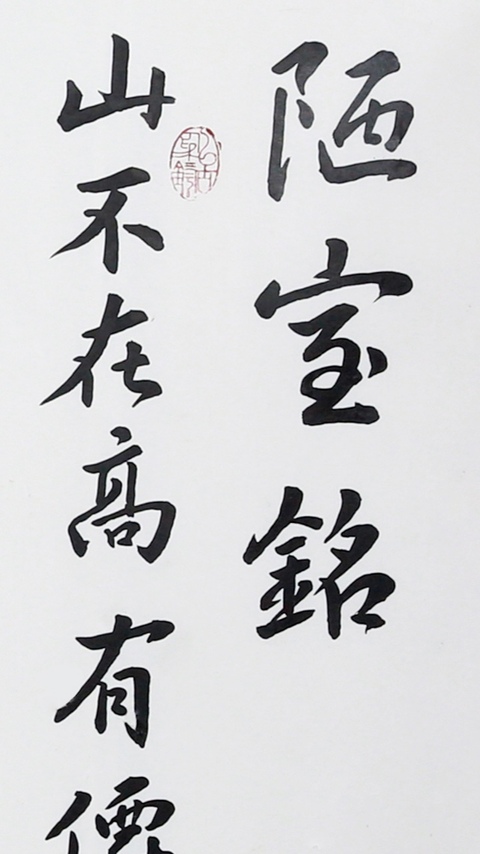 陋室銘
山不在高有僊